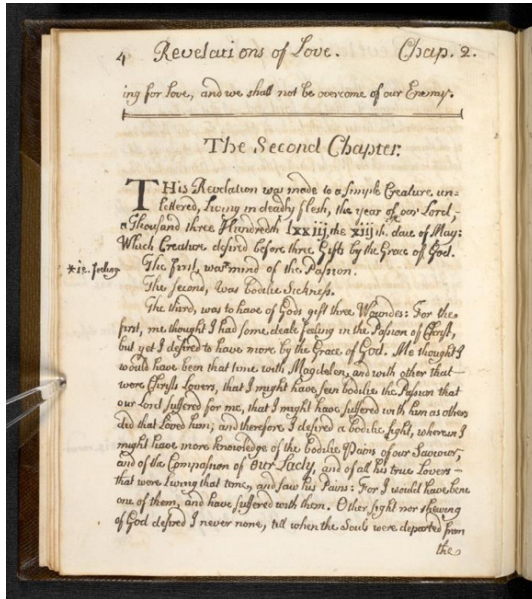 4 Revelations of Love. Chap. 2.
ing for Love, and we shall not be overcome of our Enemy.
The Second Chapter.
THis Revelation was made to a simple Creature un-
lettered, Living in deadly flesh, the year of our Lord,
a Thousand three Hundredth lxxiij, the xiijth. daie of May:
Which Creature desired before three Gifts by the Grace of God.
*i.e. feeling
The first, was* mind of the Passion.
The Second, was bodilie Sickness.
The third, was to have of Gods gift three Wounds: For the
first, me thought I had some deale feeling in the Passion of Christ,
but yet I desired to have more by the Grace of God. Me thought I
would have been that time with Magdalen, and with other that
were Christs Lovers, that I might have seen bodilie the Passion that
our Lord suffered for me, that I might have suffered with him as others
did that Loved him; and therefore I desired a bodilie sight, wherein I
might have more knowledge of the bodilie Pains of our Saviour,
and of the Compassion of Our Lady, and of all his true Lovers
that were living that time, and saw his Pains: For I would have been
one of them, and have suffered with them. Other sight nor shewing
of God desired I never none, till when the Souls were departed from
the